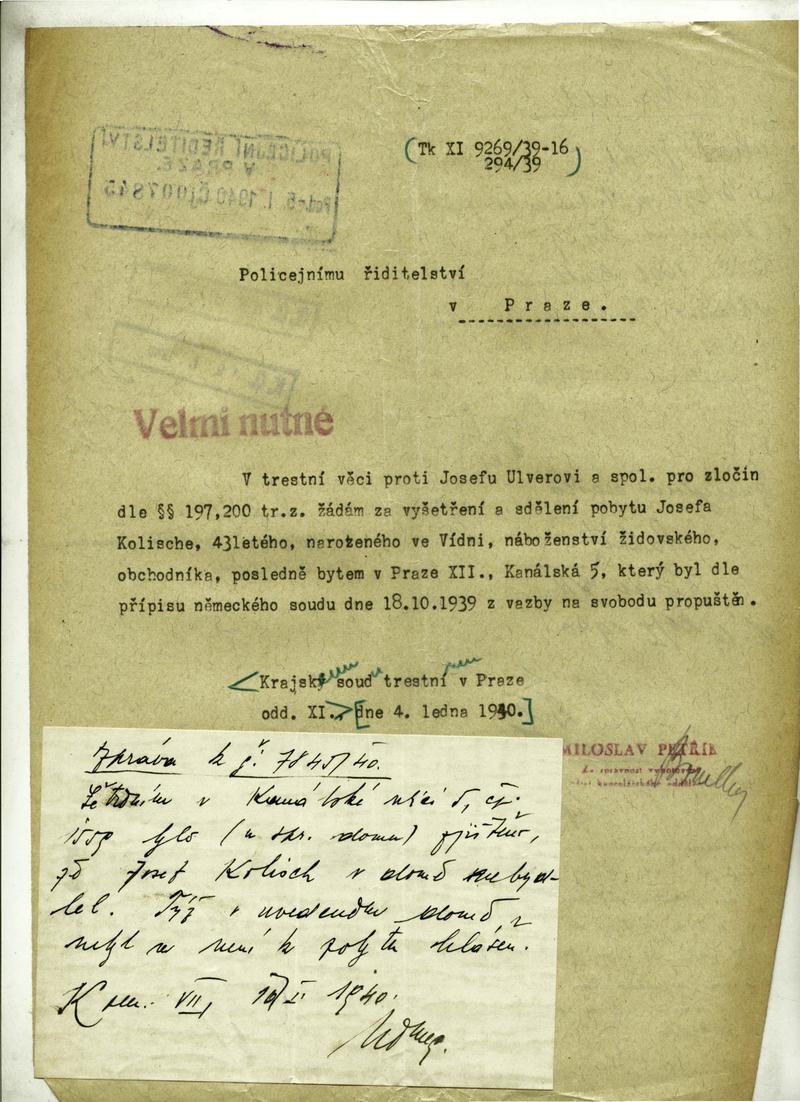 Tk XI 9269/39-16
294/39
POLICEJNÍ ŘEDITELSTVÍ
V PRAZE.
1940 Čj 007845
Policejnímu řiditelství
v Praze.
Velmi nutné
V trestní věci proti Josefu Ulverovi a spol. pro zločin
dle §§ 197,200 tr.z. žádám za vyšetření a sdělení pobytu Josefa
Kolische, 43letého, narozeného ve Vídni, náboženství židovského,
obchodníka, posledně bytem v Praze XII., Kanálská 5, který byl dle
přípisu německého soudu dne 18.10.1939 z vazby na svobodu propuštěn.
Krajský soud trestní v Praze
odd. XI., dne 4. ledna 1940.
MILOSLAV PETŘÍK
Za správnost vyhotovení
Zpráva k č. 7845/40.
Šetřením v Kanálské ulici 5, čp.
1559 bylo (u spr. domu) zjištěno,
že Josef Kolisch v domě nebyd-
lel. Týž v uvedeném domě
nebyl a není k pobytu hlášen.
Kom. VII, 1940.